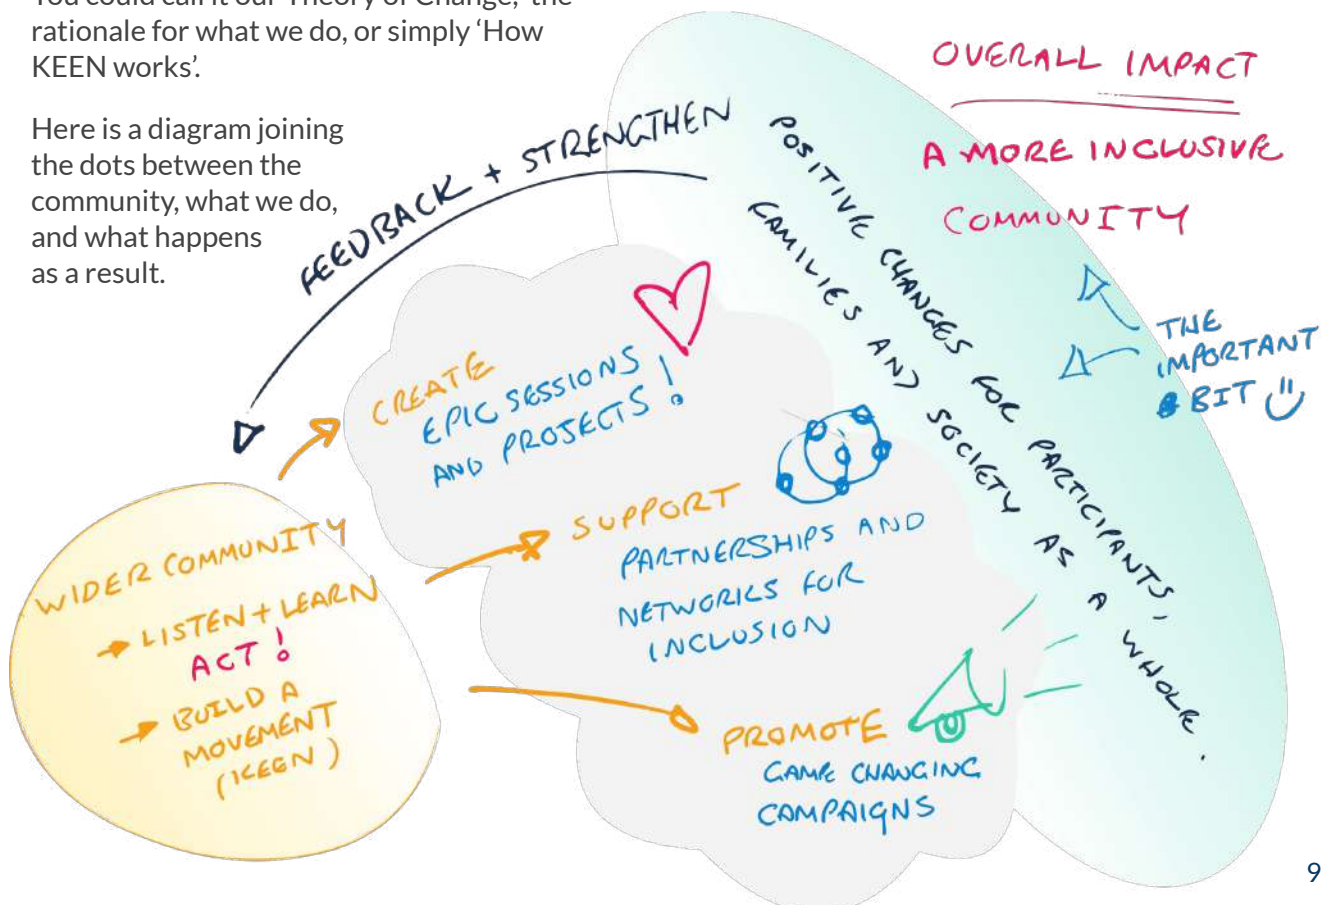 You could call it our 'Theory of Change,' the
rationale for what we do, or simply 'How
KEEN works'.
Here is a diagram joining
the dots between the
community, what we do,
and what happens
as a result.
OVERALL IMPACT
A MORE INCLUSIVE
COMMUNITY
THE
IMPORTANT
BIT
FEEDBACK + STRENGTHEN
POSITIVE CHANGES FOR PARTICIPANTS,
FAMILIES AND SOCIETY AS A WHOLE.
CREATE
EPIC SESSIONS
AND PROJECTS!
SUPPORT
PARTNERSHIPS AND
NETWORKS FOR
INCLUSION
PROMOTE
GAME CHANGING
CAMPAIGNS
WIDER COMMUNITY
LISTEN + LEARN
ACT!
BUILD A
MOVEMENT
(KEEN)
9